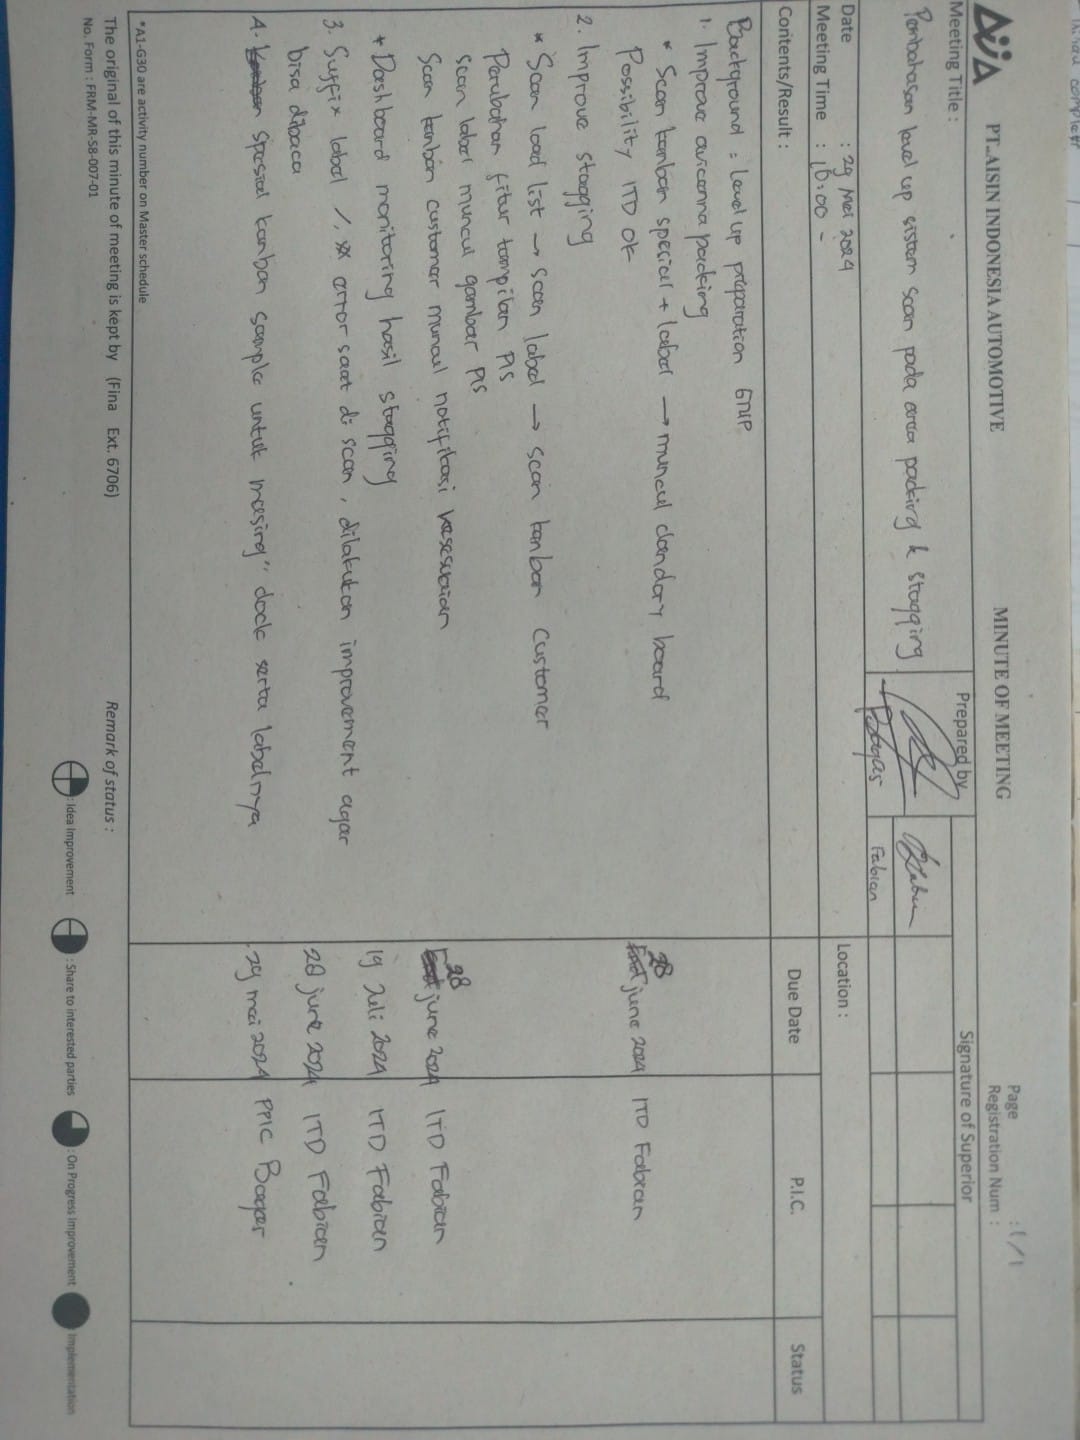 PT. AISIN INDONESIA AUTOMOTIVE
MINUTE OF MEETING
Page : 1/1
Registration Num :
Meeting Title :
Pembahasan level up sistem scan pada area packing & stagging
Prepared by
Bagas
Signature of Superior
Fabian
Date : 29 Mei 2024
Meeting Time : 10:00 -
Location :
Contents/Result :
Due Date
P.I.C.
Status
Background : Level up preparation
1. Improve avicenna packing
* Scan kanban special + label → muncul dandory board
Possibility ITD OK
28 june 2024 ITD Fabian
2. Improve stagging
* Scan load list → scan label → scan kanban customer
Perubahan fitur tampilan PIS
scan label muncul gambar PIS
Scan kanban customer muncul notifikasi kesesuaian
28 june 2024 ITD Fabian
* Dashboard monitoring hasil stagging
19 Juli 2024 ITD Fabian
3. Suffix label error saat di scan, dilakukan improvement agar
bisa dibaca
28 june 2024 ITD Fabian
4. spesial kanban sample untuk masing" dock serta labelnya
29 mei 2024 PPIC Bagas
*A1-G30 are activity number on Master schedule
The original of this minute of meeting is kept by (Fina Ext. 6706)
No. Form : FRM-MR-S8-007-01
Remark of status :
: Idea Improvement
: Share to interested parties
: On Progress Improvement
Implementation